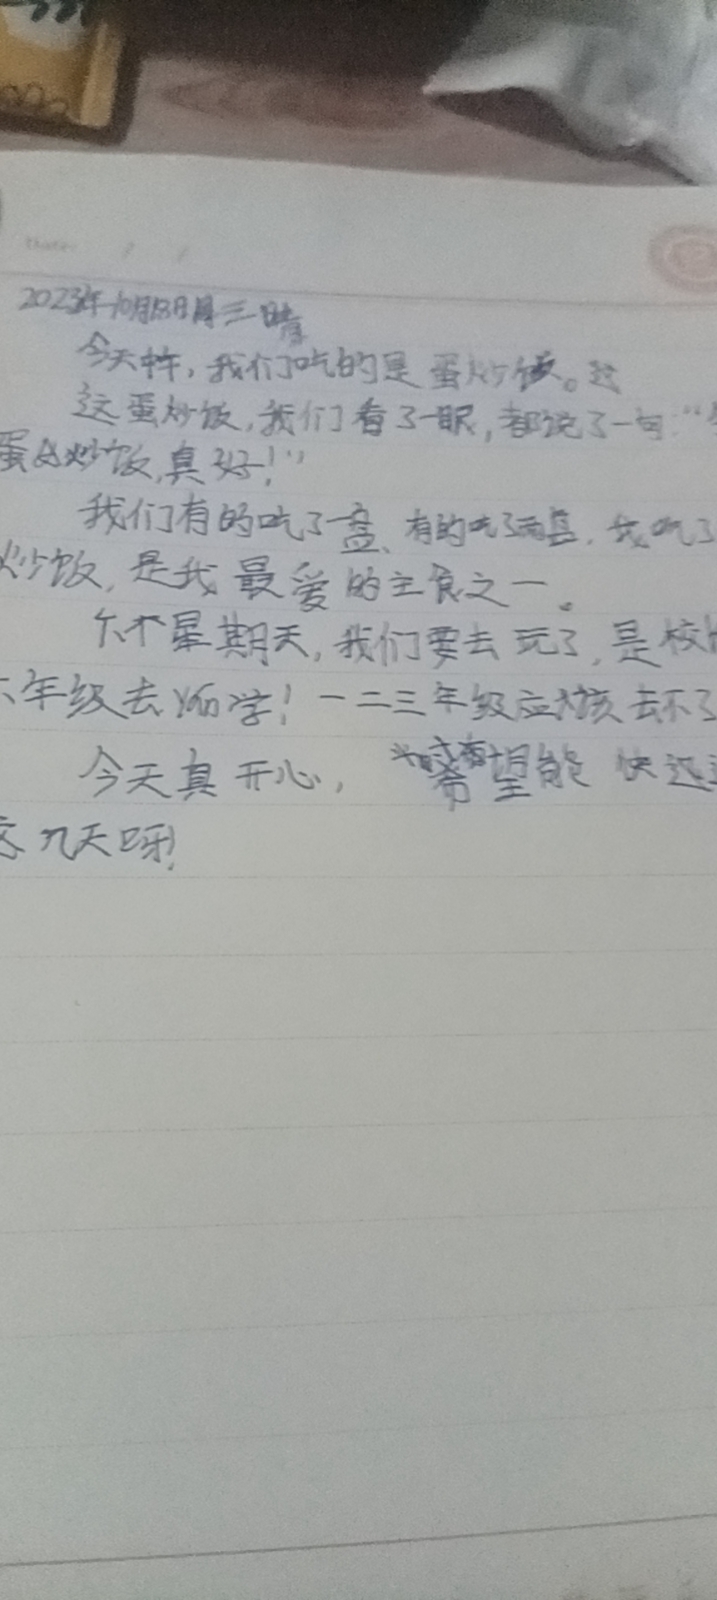 Date: / /
2023年10月18日周三晴
今天中午,我们吃的是蛋炒饭。这
这蛋炒饭,我们看了一眼,都说了一句:“
蛋炒饭,真好!”
我们有的吃了一盘、有的吃了两盘,我吃了
炒饭,是我最爱的主食之一。
下个星期天,我们要去玩了,是校
六年级去 学!一二三年级应该去不了
今天真开心,希望能快
这几天呀!